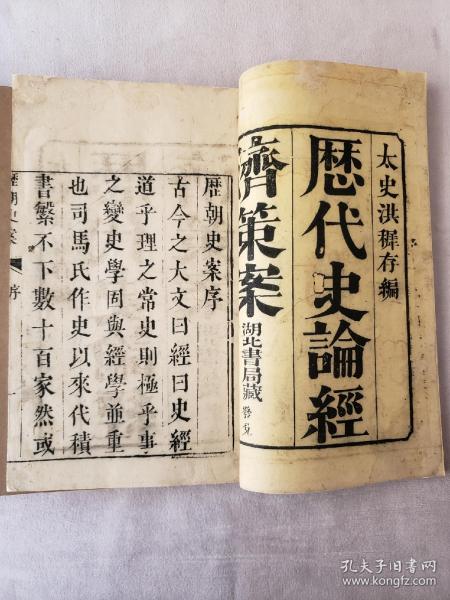 太史洪穉存編
歴代史論經
濟策案
湖北書局藏
歴朝史案序
古今之大文曰經曰史經
道乎理之常史則極乎事
之變史學固與經學並重
也司馬氏作史以來代積
書繁不下數十百家然或
歴朝史案
序
孔夫子旧书网
www.kongfz.com